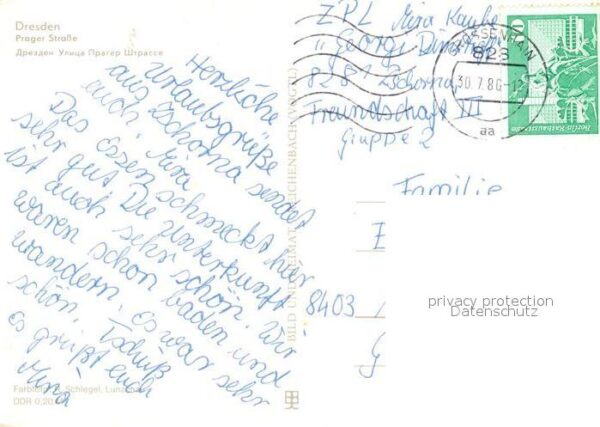 Dresden
Prager Straße
Дрезден Улица Прагер Штрассе
Herzliche
Urlaubsgrüße
aus Zschorna sendet
euch Mira
Das Essen schmeckt hier
sehr gut. Die Unterkunft
ist auch sehr schön. Wir
waren schon baden und
wandern. Es war sehr
schön. Tschüß
Es grüßt euch
Mira
Farbfoto: Schlegel,
DDR 0,20
BILD UND HEIMAT REICHENBACH (VOGTL)
ZPL Mira
"Georgi
8281 Zschorna
Freundschaft III
Gruppe 2
Familie
E
8403
G
GROSSENHAIN
828
30.7.86-12
aa
10
Berlin, Rathausstraße
privacy protection
Datenschutz